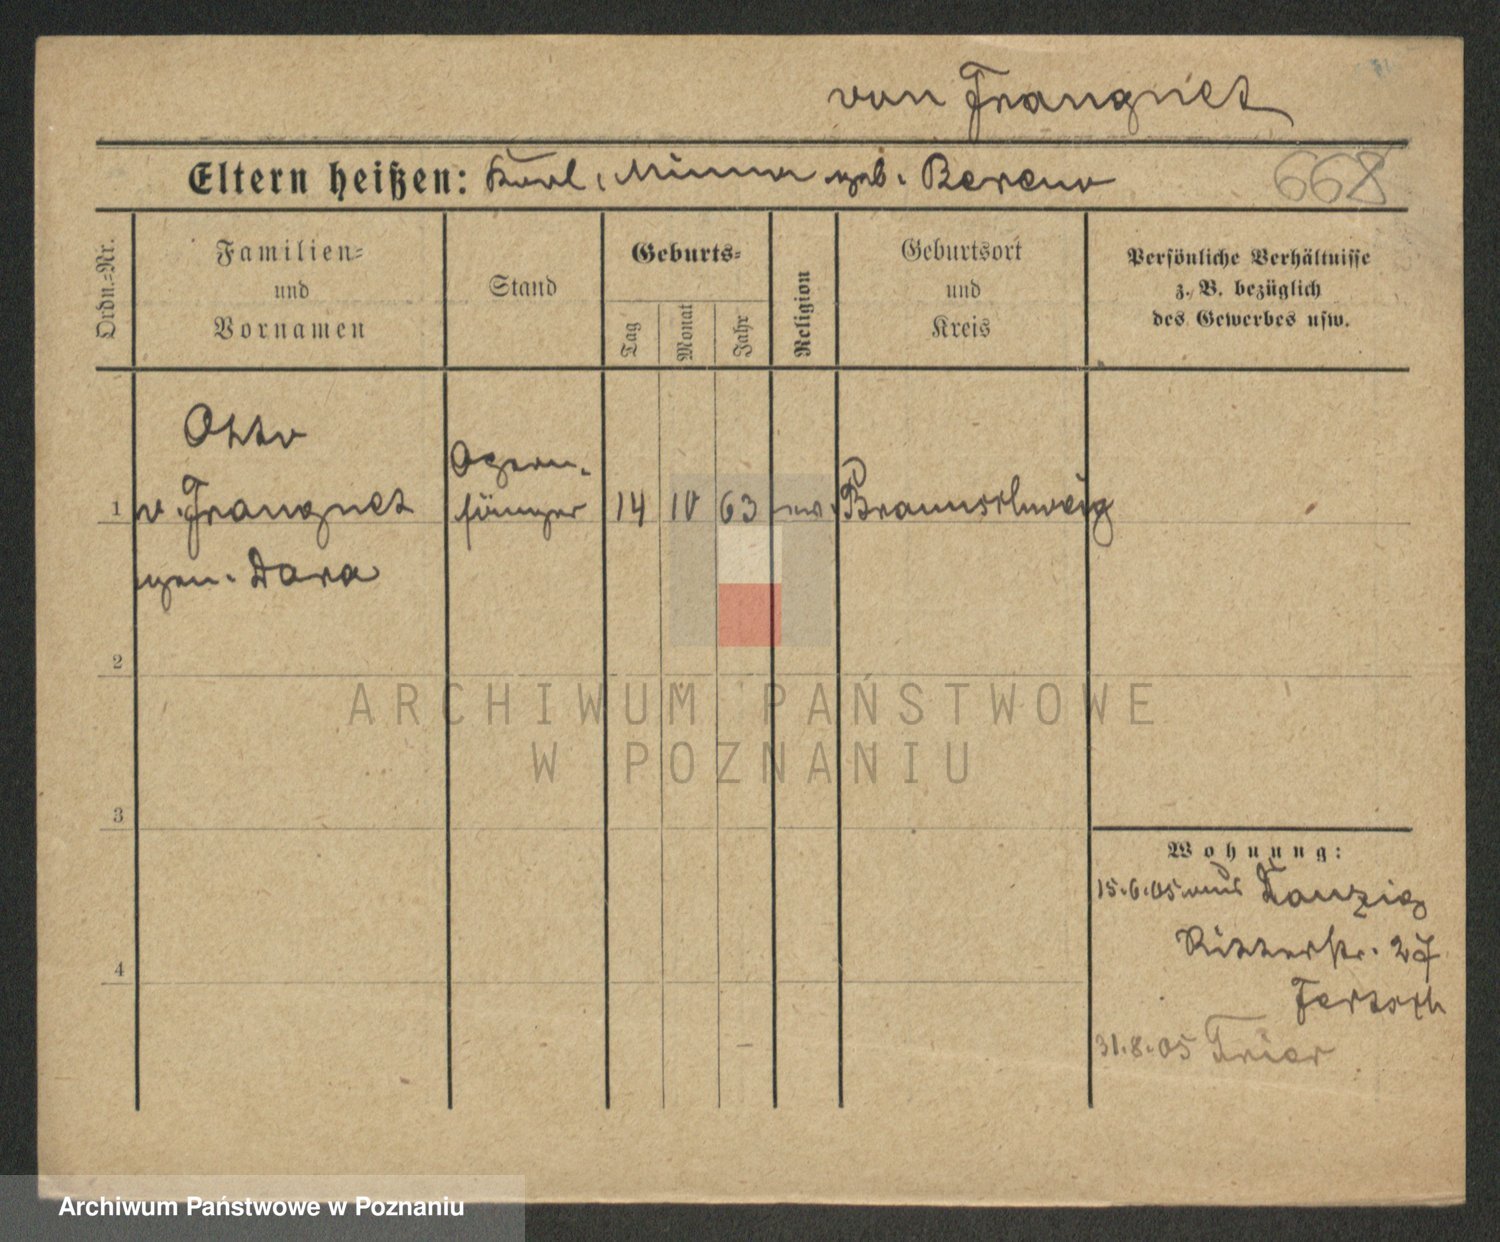 von Frangnet
Eltern heißen: Karl, Minna geb. Bereno
668
Ordn.=Nr.
Familien=
und
Vornamen
Stand
Geburts=
Tag
Monat
Jahr
Religion
Geburtsort
und
Kreis
Persönliche Verhältnisse
z. B. bezüglich
des Gewerbes usw.
Otto
1 v. Frangnet
gen. Dara
Opern-
sänger
14 10 63 ev. Braunschweig
2
3
4
ARCHIWUM PAŃSTWOWE
W POZNANIU
Wohnung:
15.6.05 aus Danzig
Ritterstr. 27
31.8.05 Trier
Archiwum Państwowe w Poznaniu